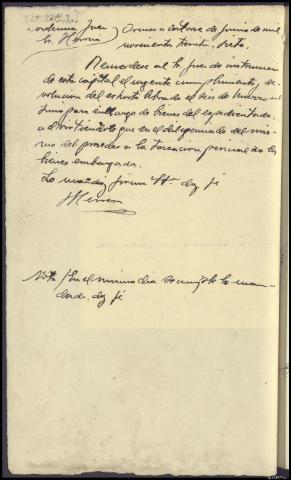 Providencia Juez
Sr. Herrera
Orense a catorce de junio de mil
novecientos treinta y siete.
Recuérdese al Sr. Juez de instrucción
de esta capital el urgente cumplimiento y de-
volución del exhorto librado el seis de marzo ul-
timo para embargo de bienes del expedientado,
advirtiéndole que en el diligenciado del mis-
mo debe procederse a la tasación pericial de los
bienes embargados.
Lo mandó y firma Sª. doy fé
Herrera
Nota / En el mismo día se cumple lo man-
dado, doy fé